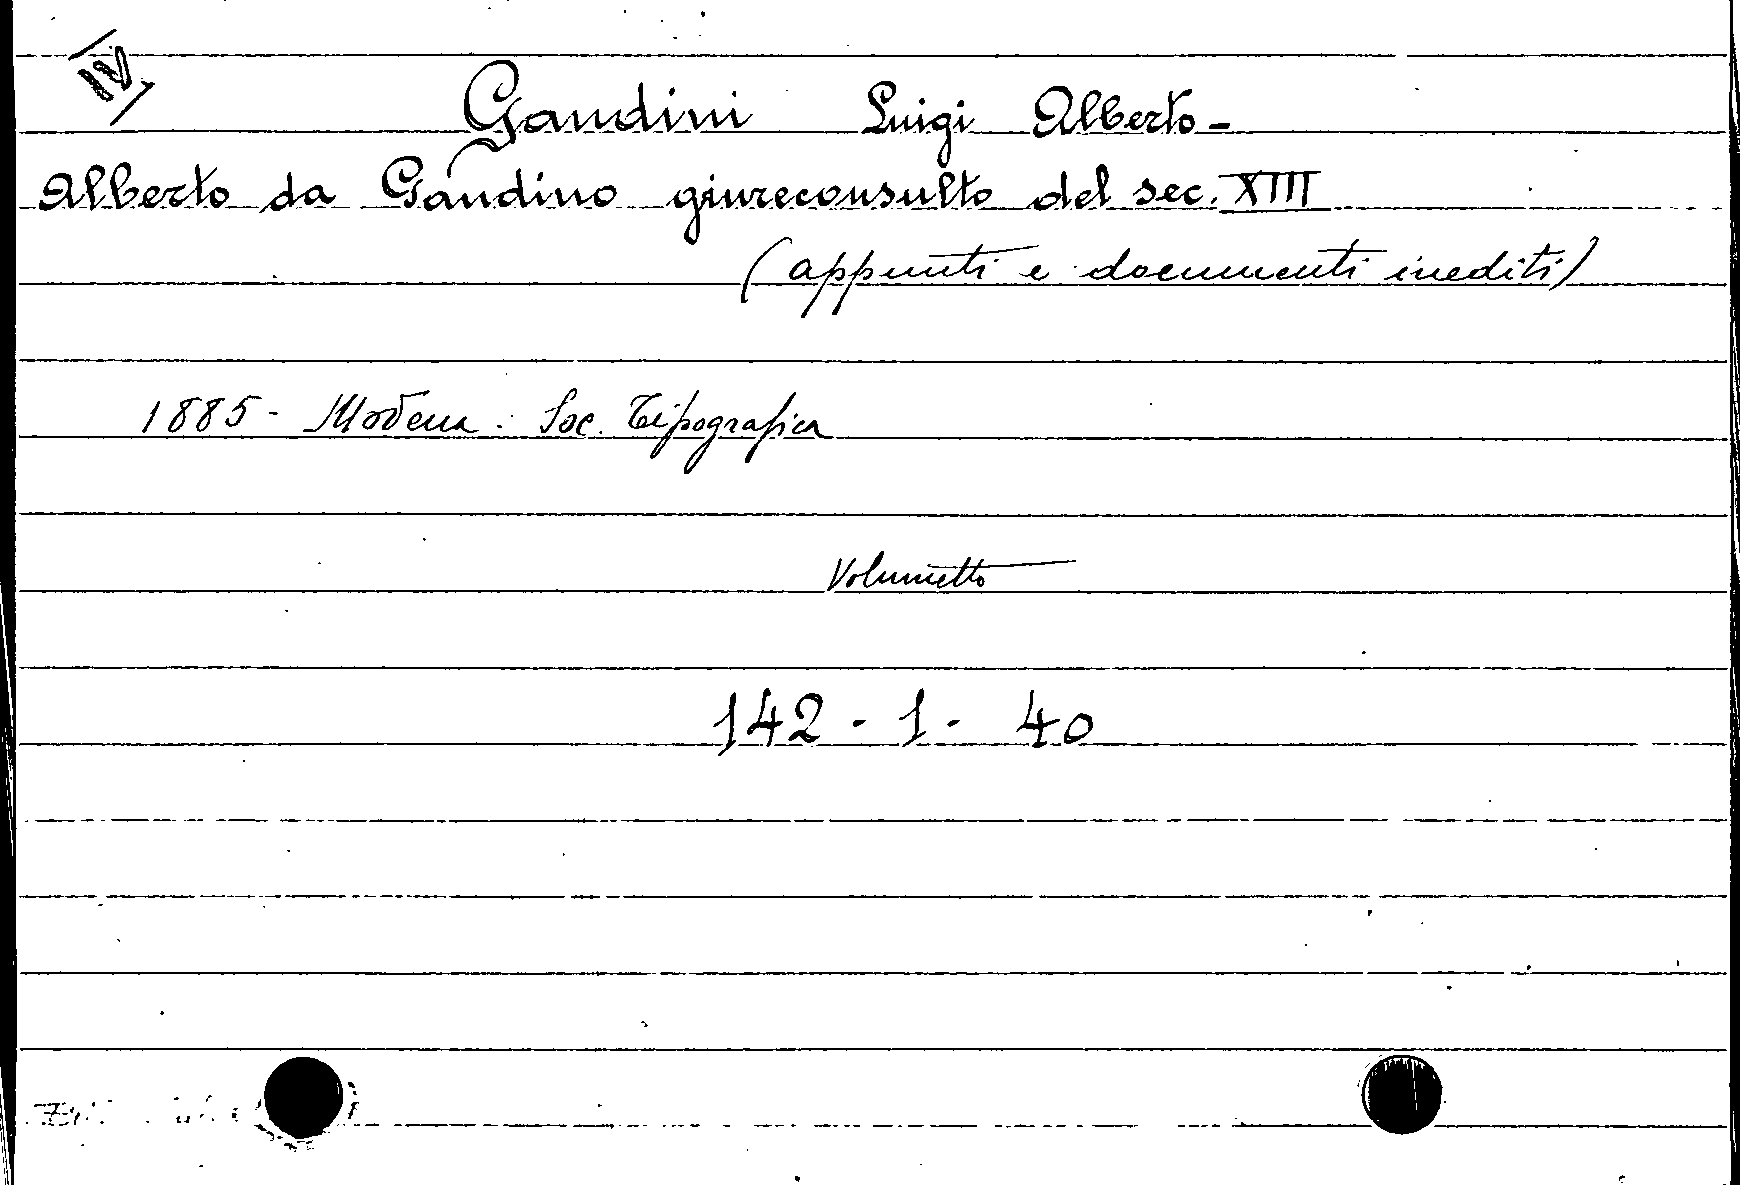 IV
Gandini Luigi Alberto -
Alberto da Gandino giureconsulto del sec. XIII
(appunti e documenti inediti)
1885 - Modena. Soc. Tipografica
Volumetto
142 - 1 - 40